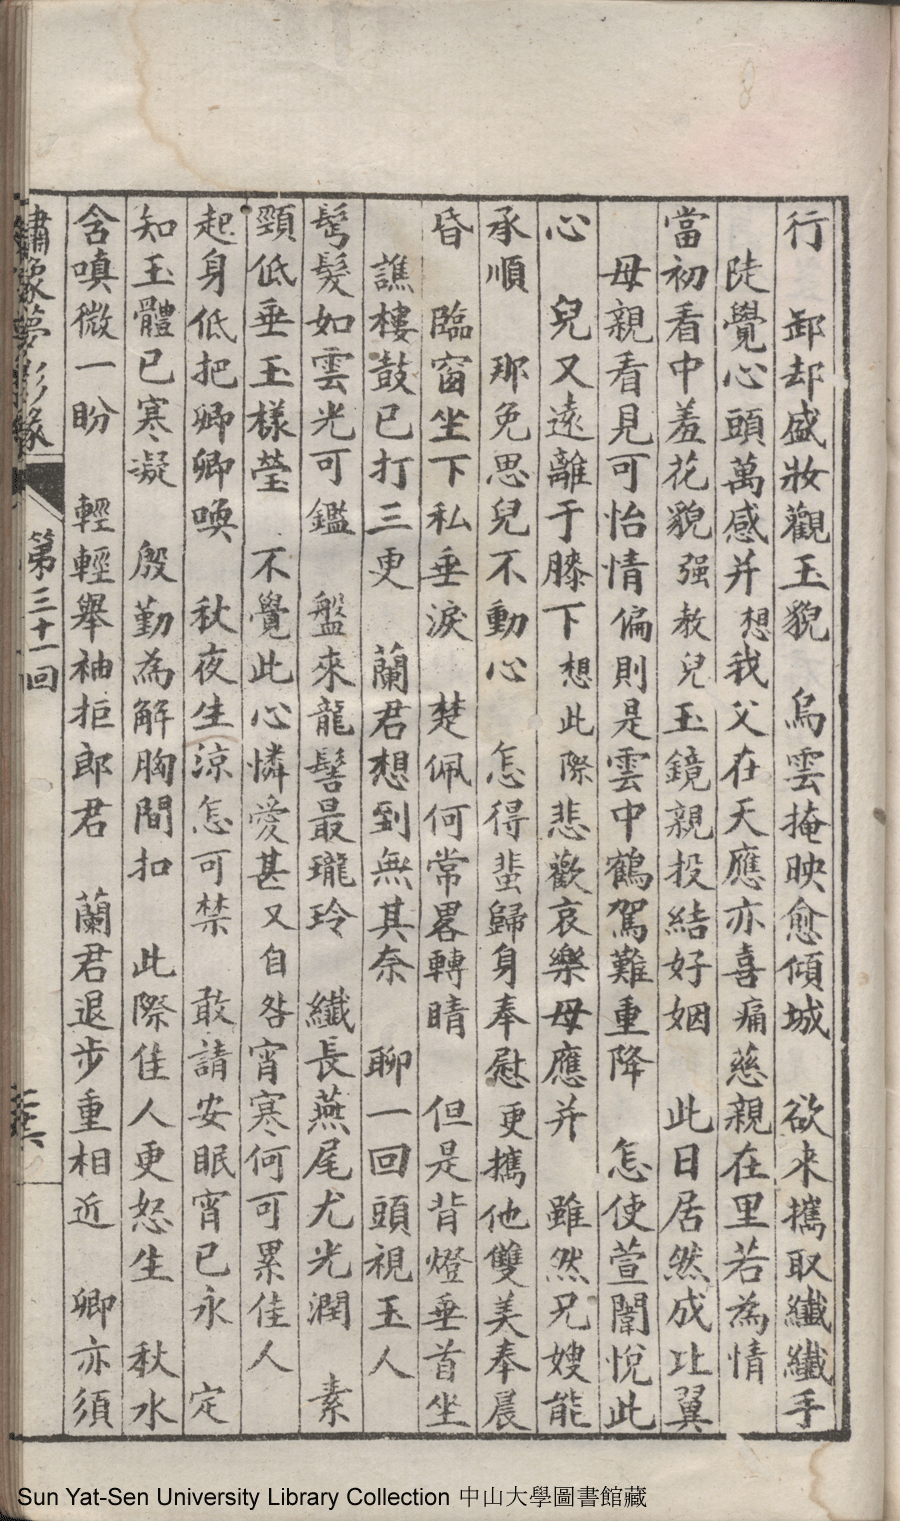 行　卸却盛妝觀玉貌　烏雲掩映愈傾城　欲來攜取纖纖手
陡覺心頭萬感并　想我父在天應亦喜　痛慈親在里若為情
當初看中羞花貌　强教兒玉鏡親投結好姻　此日居然成比翼
母親看見可怡情　偏則是雲中鶴駕難重降　怎使萱闈悅此
心　兒又遠離于膝下　想此際悲歡哀樂母應并　雖然兄嫂能
承順　那免思兒不動心　怎得蜚歸身奉慰　更攜他雙美奉晨
昏　臨窗坐下私垂淚　楚佩何常畧轉睛　但是背燈垂首坐
譙樓鼓已打三更　蘭君想到無其奈　聊一回頭視玉人
髩髮如雲光可鑑　盤來龍髻最瓏玲　纖長燕尾尤光潤　素
頸低垂玉樣瑩　不覺此心憐愛甚　又自咎宵寒何可累佳人
起身低把卿卿喚　秋夜生涼怎可禁　敢請安眠宵已永　定
知玉體已寒凝　殷勤為解胸間扣　此際佳人更怒生　秋水
含嗔微一盼　輕輕舉袖拒郎君　蘭君退步重相近　卿亦須
繡像夢影緣　第三十一回
Sun Yat-Sen University Library Collection 中山大學圖書館藏